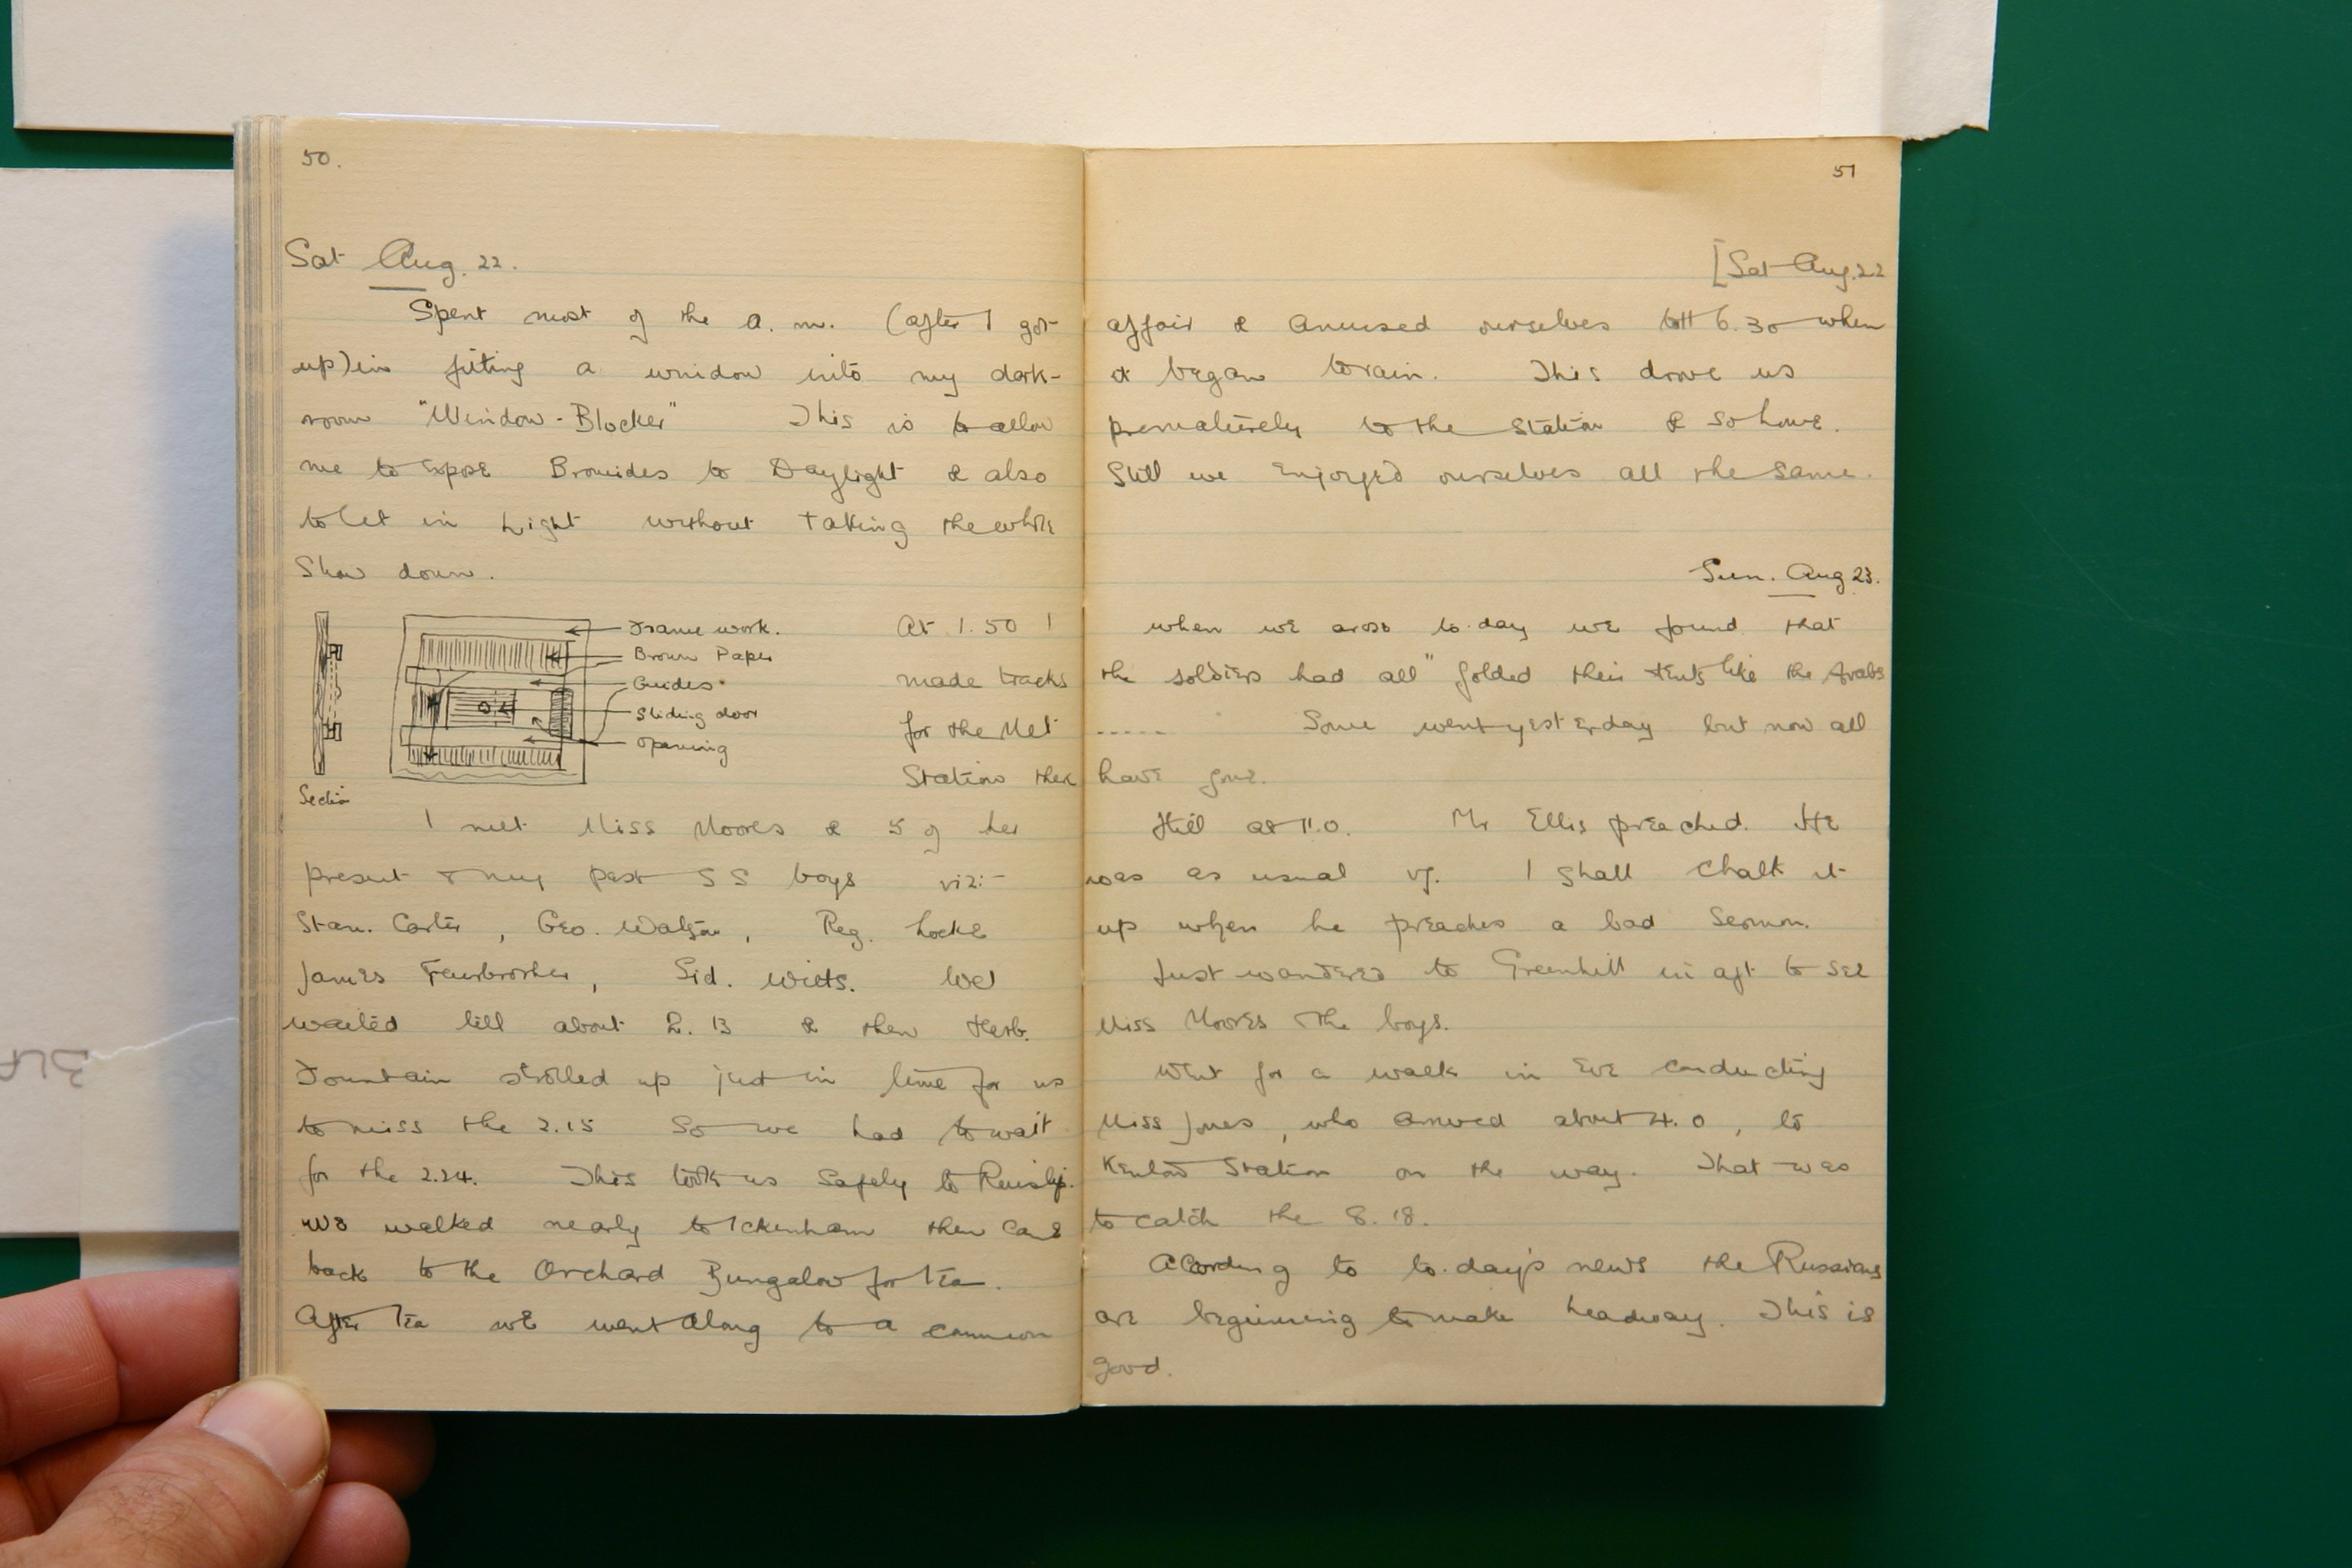 50.
Sat Aug. 22.
Spent most of the a. m. (after I got
up) in fitting a window into my dark-
room "Window-Blocker" This is to allow
me to expose Bromides to Daylight & also
to let in Light without taking the whole
Show down.
Frame work.
Brown Paper
Guides
Sliding door
opening
Section
At 1.50 I
made tracks
for the Met
Station there
I met Miss Moores & 5 of her
present & my past S S boys viz:-
Stan. Carter, Geo. Watson, Reg. Locke
James Fairbrother, Sid. Witts. We
waited till about 2.13 & then Herb.
Fountain strolled up just in time for us
to miss the 2.15 So we had to wait
for the 2.24. This took us Safely to Ruislip.
We walked nearly to Ickenham then came
back to the Orchard Bungalow for Tea.
After Tea we went along to a common
51
[Sat Aug. 22
affair & amused ourselves till 6.30 when
it began to rain. This drove us
prematurely to the Station & so home.
Still we enjoyed ourselves all the same.
Sun. Aug 23.
When we arose to-day we found that
the soldiers had all "folded their tents like the Arabs
..... Some went yesterday but now all
have gone.
Hill at 11.0. Mr Ellis preached. He
was as usual vg. I shall chalk it
up when he preaches a bad sermon.
Just wandered to Greenhill in aft to see
Miss Moores & the boys.
Went for a walk in Eve conducting
Miss Jones, who arrived about 4.0, to
Kenton Station on the way. That was
to catch the 8.18.
According to to-day's news the Russians
are beginning to make headway. This is
good.